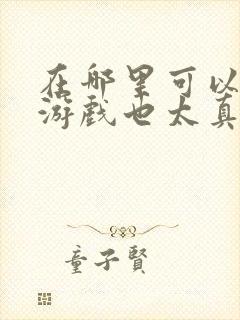 在哪里可以
游戏也太真
童子賢